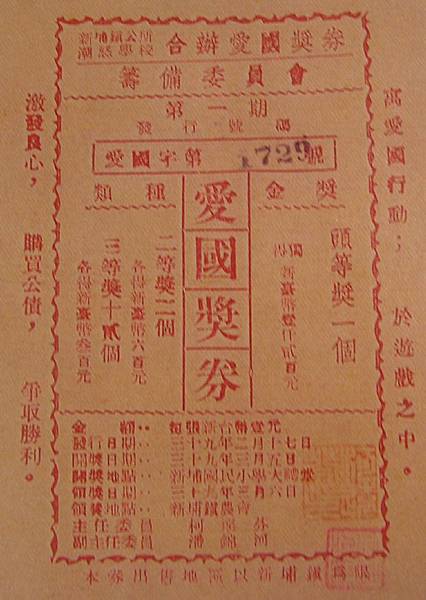 合辦愛國獎券
籌備委員會
第一期
發行號碼
愛國字第 1729 號
獎金種類
愛國獎券
頭等獎一個
獨得新臺幣壹仟貳百元
二等獎二個
各得新臺幣六百元
三等獎十貳個
各得新臺幣叁百元
寓愛國行動；於遊戲之中。
激發良心，購買公債，爭取勝利。
金額：每張新台幣壹元
發行日期：三十九年
開獎日期：三十九年
開獎地點：新埔
領獎日期：三十九年
領獎地點：新埔鎮農會
主任委員 柯
副主任委員 潘錦河
本券出售地區以新埔鎮為限